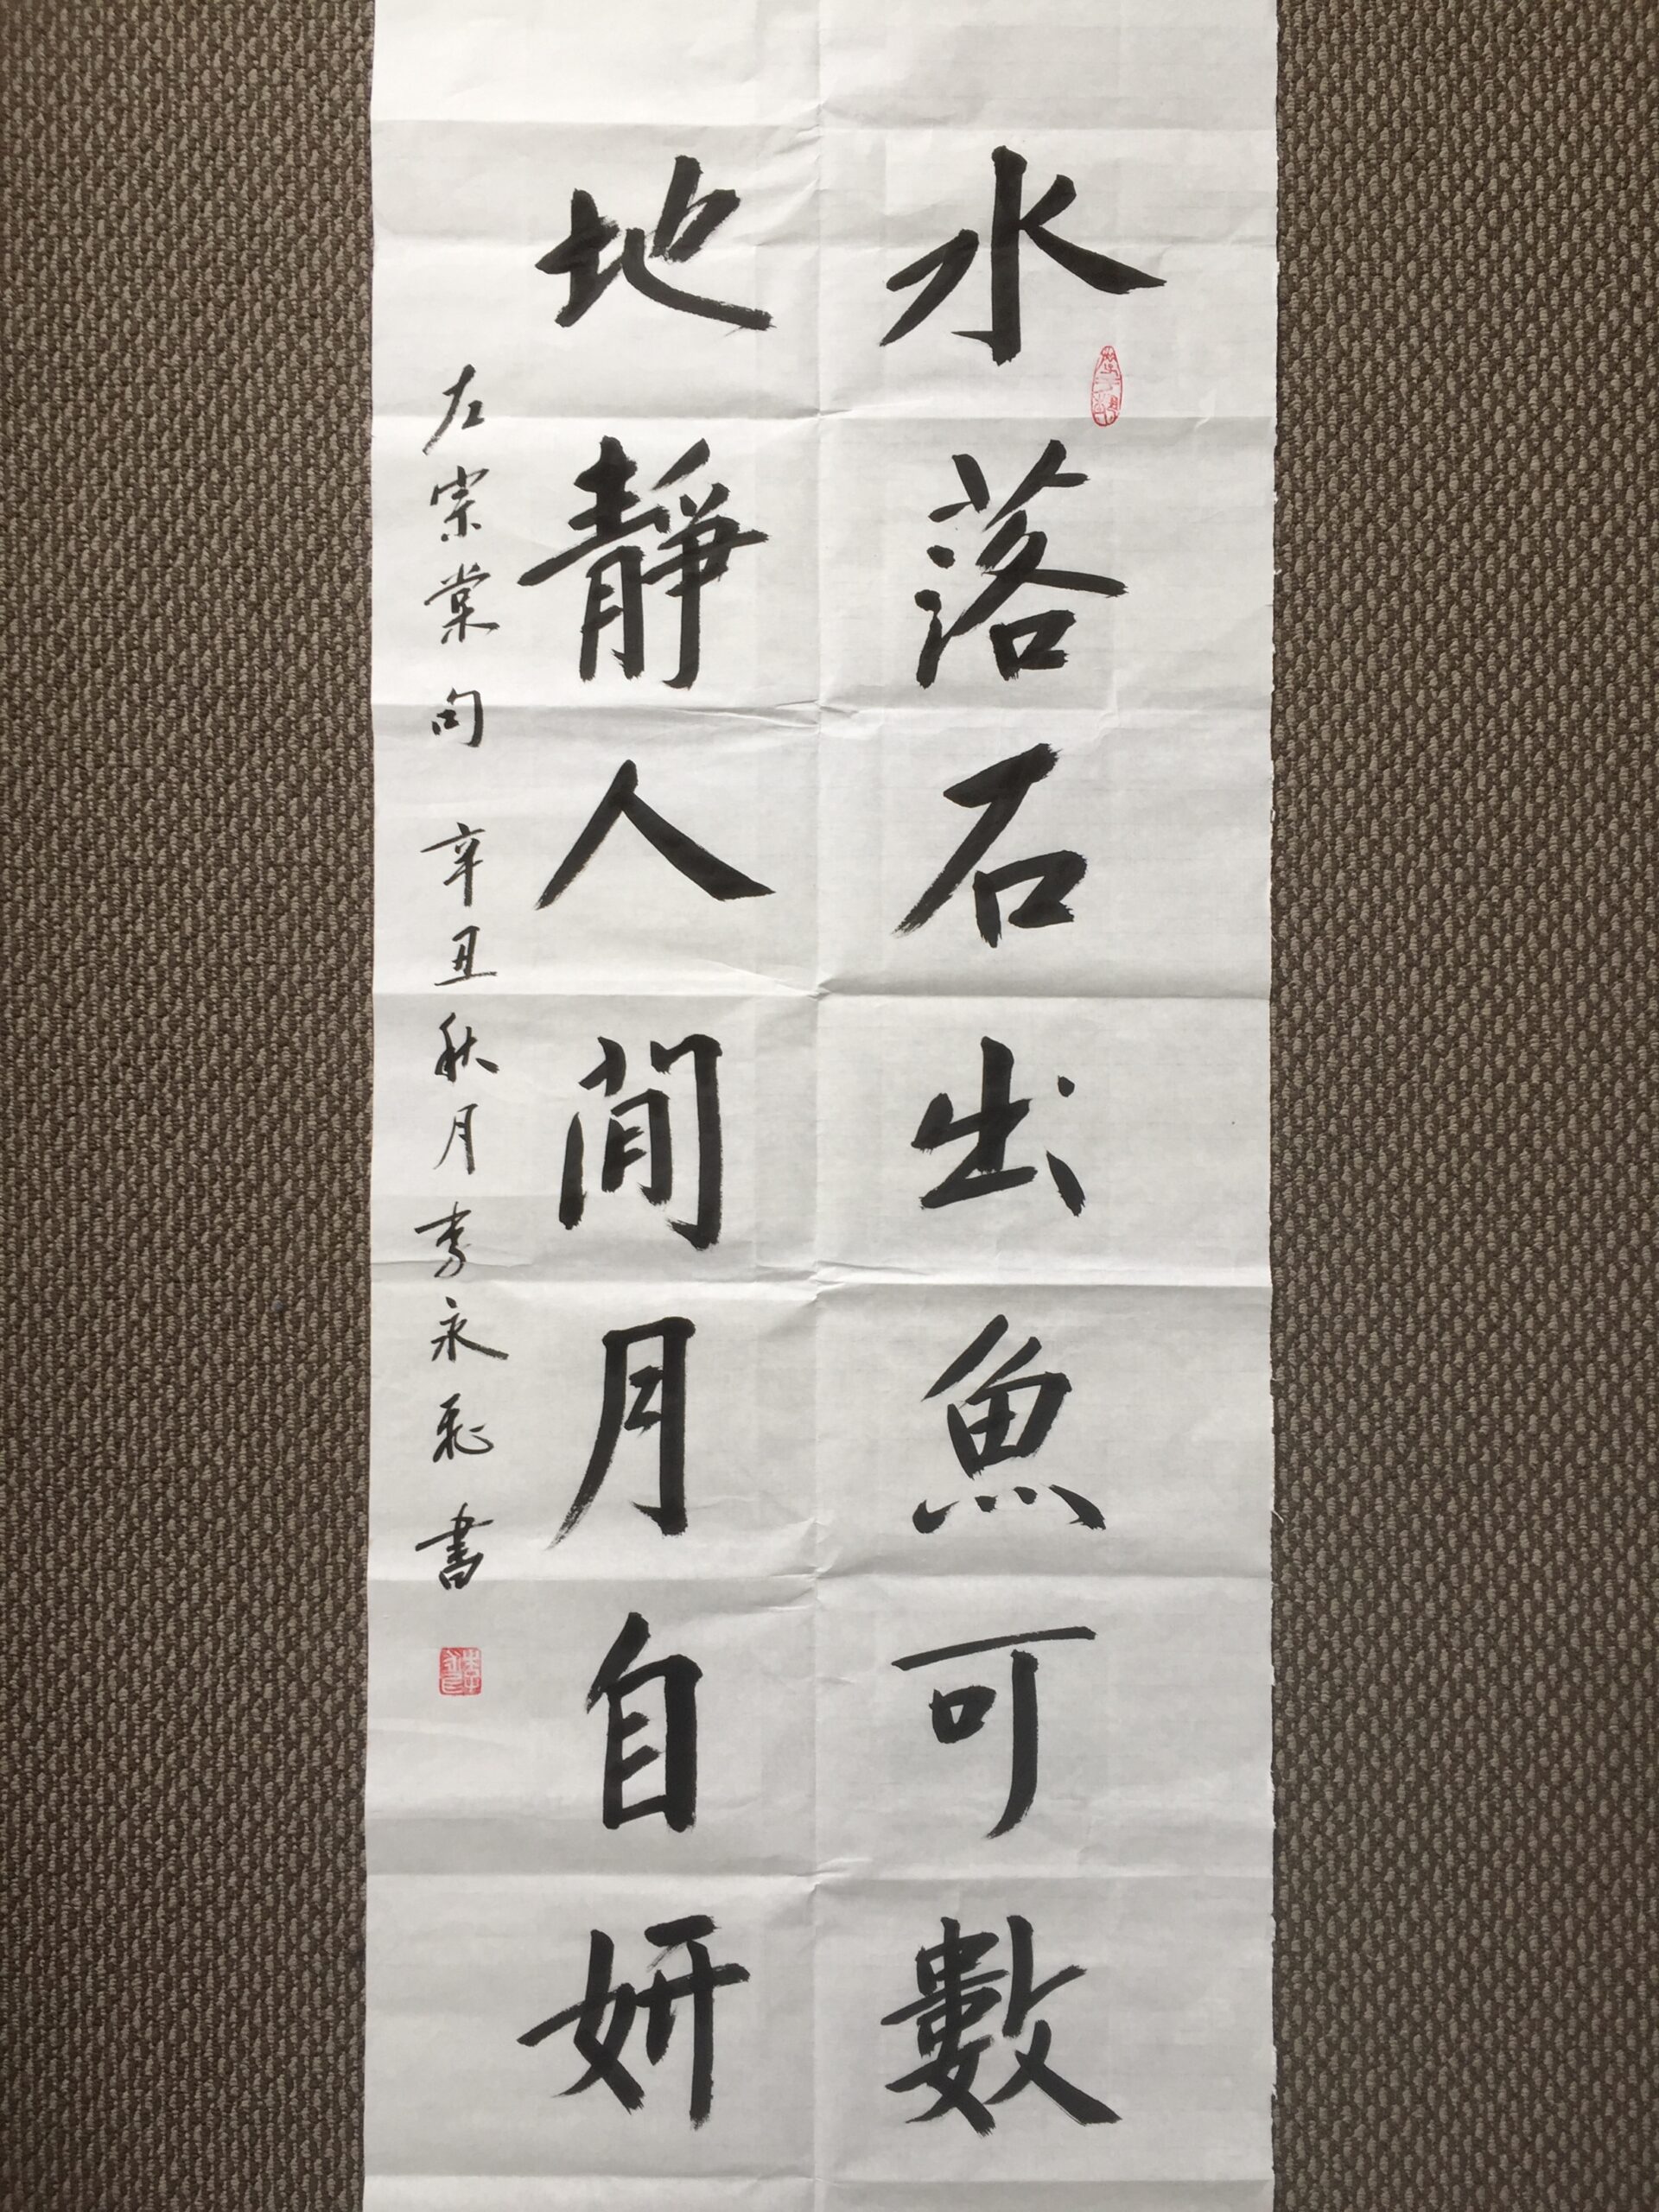 水落石出魚可數
地靜人閒月自妍
左宗棠句 辛丑秋月李永 書